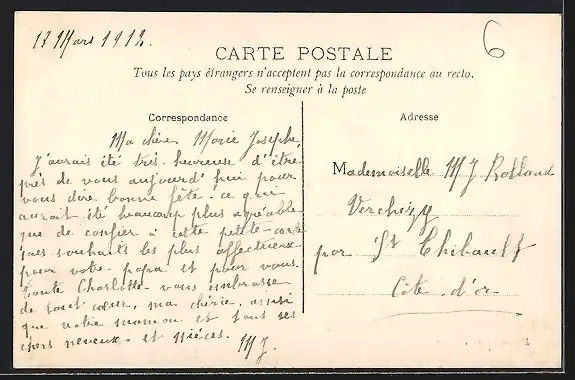 17 Mars 1912.
6
CARTE POSTALE
Tous les pays étrangers n'acceptent pas la correspondance au recto.
Se renseigner à la poste
Correspondance
Ma chère Marie Josephe,
J'aurais été très heureuse d'être
près de vous aujourd'hui pour
vous dire bonne fête! ce qui
aurait été beaucoup plus agréable
que de confier à cette petite carte
mes souhaits les plus affectueux
pour votre papa et pour vous.
Tante Charlotte vous embrasse
de tout cœur, ma chérie, ainsi
que votre maman et tous ses
chers neveux et nièces.
M J.
Adresse
Mademoiselle M J Rolland
par St Thibault
Côte d'or